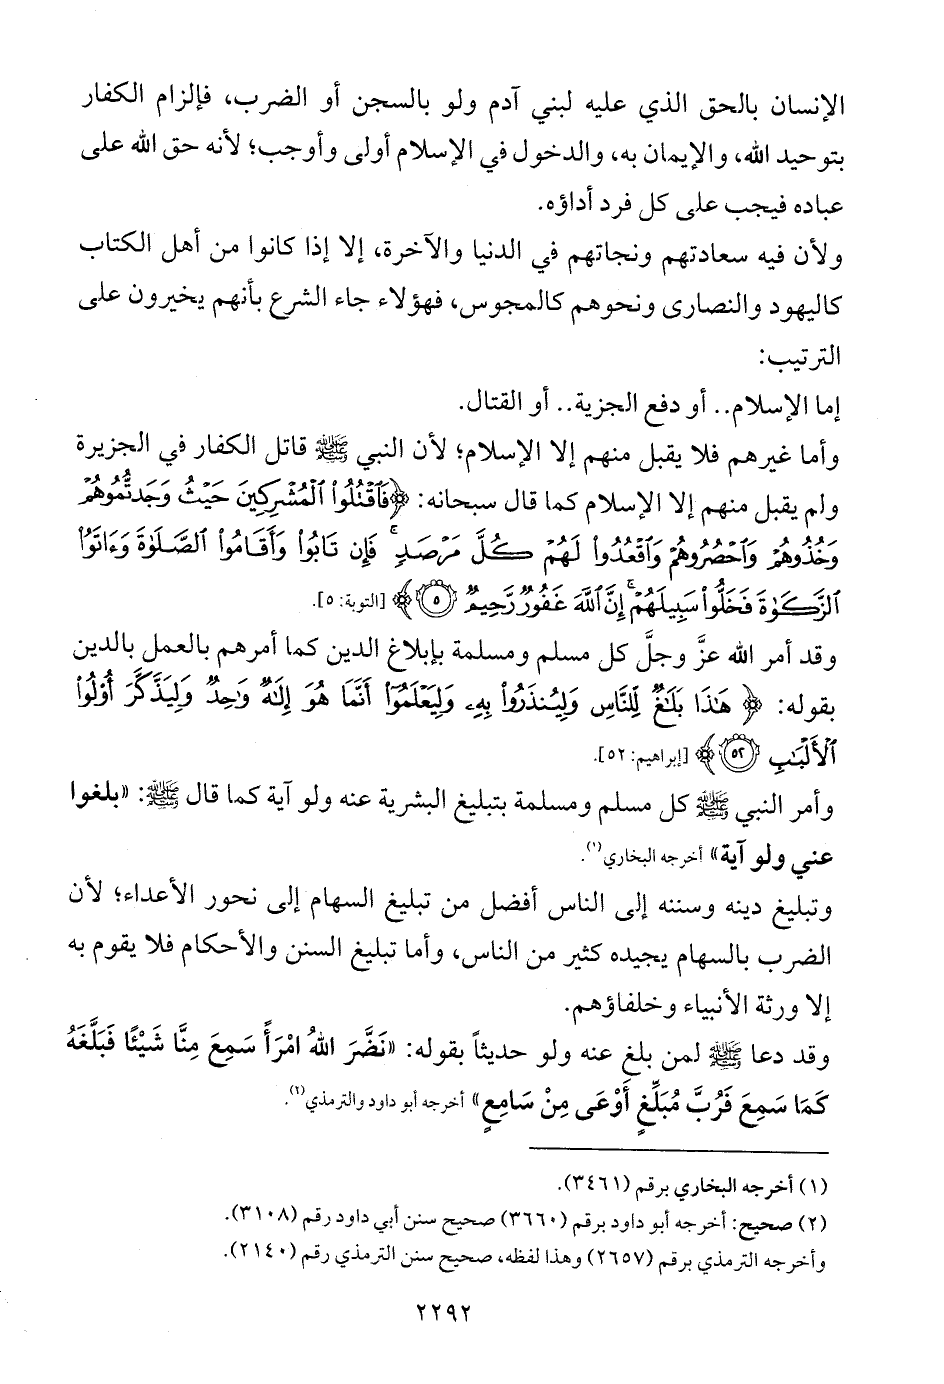 الإنسان بالحق الذي عليه لبني آدم ولو بالسجن أو الضرب، فإلزام الكفار
بتوحيد الله، والإيمان به، والدخول في الإسلام أولى وأوجب؛ لأنه حق الله على
عباده فيجب على كل فرد أداؤه.
ولأن فيه سعادتهم ونجاتهم في الدنيا والآخرة، إلا إذا كانوا من أهل الكتاب
كاليهود والنصارى ونحوهم كالمجوس، فهؤلاء جاء الشرع بأنهم يخيرون على
الترتيب:
إما الإسلام.. أو دفع الجزية.. أو القتال.
وأما غيرهم فلا يقبل منهم إلا الإسلام؛ لأن النبي ﷺ قاتل الكفار في الجزيرة
ولم يقبل منهم إلا الإسلام كما قال سبحانه: ﴿فَٱقْتُلُوا۟ ٱلْمُشْرِكِينَ حَيْثُ وَجَدتُّمُوهُمْ
وَخُذُوهُمْ وَٱحْصُرُوهُمْ وَٱقْعُدُوا۟ لَهُمْ كُلَّ مَرْصَدٍ ۚ فَإِن تَابُوا۟ وَأَقَامُوا۟ ٱلصَّلَوٰةَ وَءَاتَوُا۟
ٱلزَّكَوٰةَ فَخَلُّوا۟ سَبِيلَهُمْ ۚ إِنَّ ٱللَّهَ غَفُورٌ رَّحِيمٌ ۝٥﴾ [التوبة: ٥].
وقد أمر الله عزَّ وجلَّ كل مسلم ومسلمة بإبلاغ الدين كما أمرهم بالعمل بالدين
بقوله: ﴿هَٰذَا بَلَٰغٌ لِّلنَّاسِ وَلِيُنذَرُوا۟ بِهِۦ وَلِيَعْلَمُوٓا۟ أَنَّمَا هُوَ إِلَٰهٌ وَٰحِدٌ وَلِيَذَّكَّرَ أُو۟لُوا۟
ٱلْأَلْبَٰبِ ۝٥٢﴾ [إبراهيم: ٥٢].
وأمر النبي ﷺ كل مسلم ومسلمة بتبليغ البشرية عنه ولو آية كما قال ﷺ: «بلغوا
عني ولو آية» أخرجه البخاري(١).
وتبليغ دينه وسننه إلى الناس أفضل من تبليغ السهام إلى نحور الأعداء؛ لأن
الضرب بالسهام يجيده كثير من الناس، وأما تبليغ السنن والأحكام فلا يقوم به
إلا ورثة الأنبياء وخلفاؤهم.
وقد دعا ﷺ لمن بلغ عنه ولو حديثاً بقوله: «نَضَّرَ اللهُ امْرَأً سَمِعَ مِنَّا شَيْئًا فَبَلَّغَهُ
كَمَا سَمِعَ فَرُبَّ مُبَلِّغٍ أَوْعَى مِنْ سَامِعٍ» أخرجه أبو داود والترمذي(٢).
(١) أخرجه البخاري برقم (٣٤٦١).
(٢) صحيح: أخرجه أبو داود برقم (٣٦٦٠) صحيح سنن أبي داود رقم (٣١٠٨).
وأخرجه الترمذي برقم (٢٦٥٧) وهذا لفظه، صحيح سنن الترمذي رقم (٢١٤٠).
٢٢٩٢